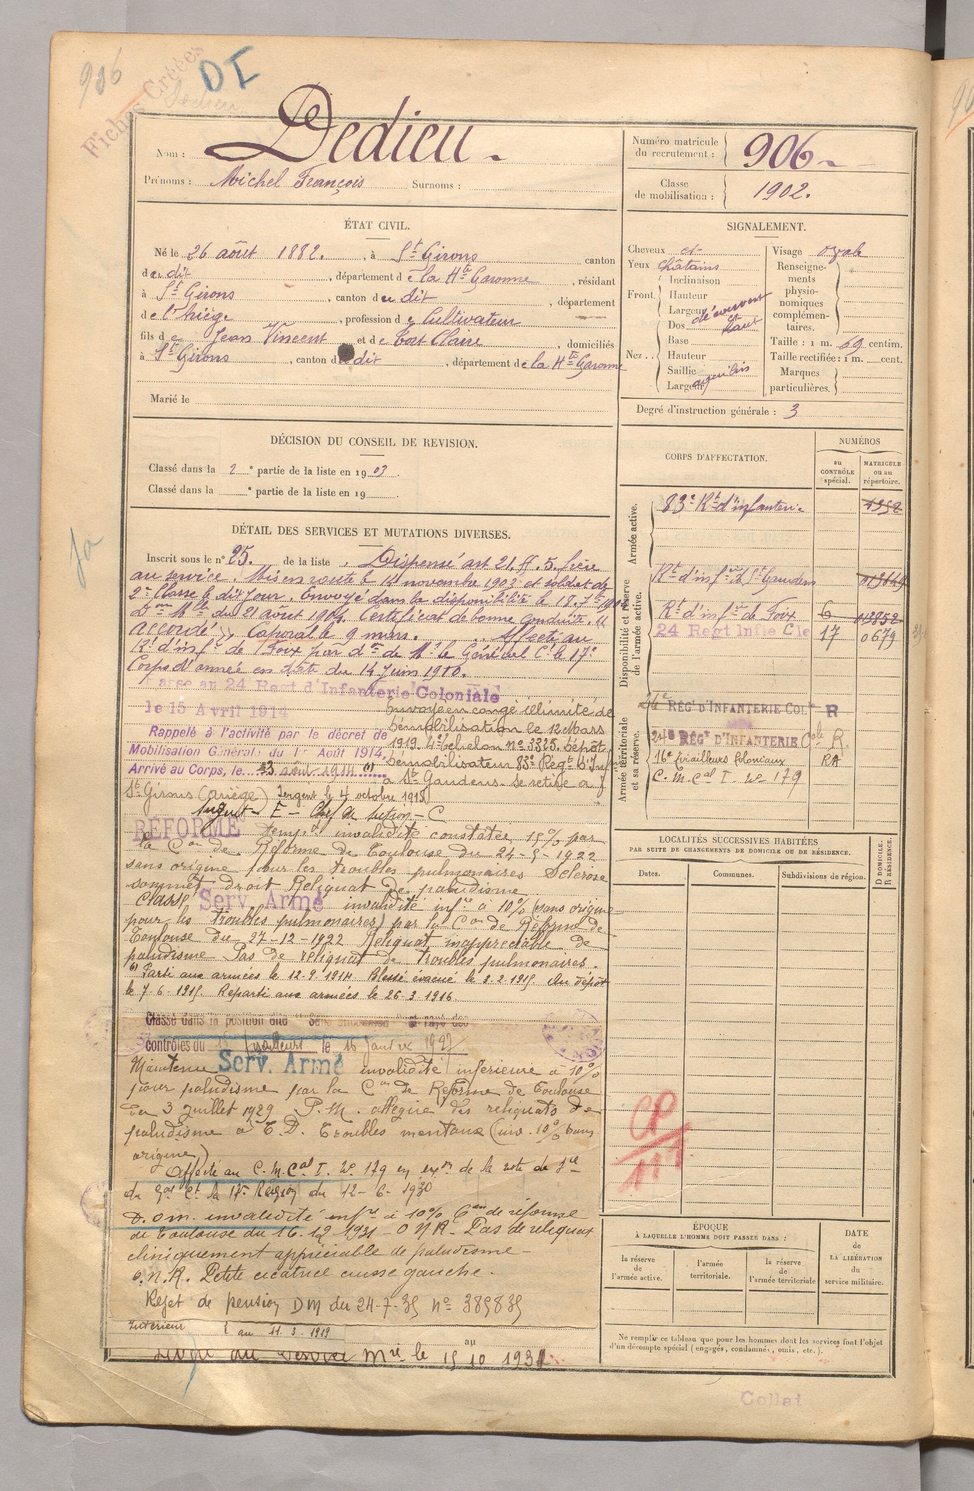 906
Fiches Créées
DI
Nom : Dedieu
Prénoms : Michel François Surnoms :
Numéro matricule du recrutement : 906
Classe de mobilisation : 1902.
ÉTAT CIVIL.
Né le 26 août 1882, à St Girons, canton
du dit, département de la Hte Garonne, résidant
à St Girons, canton du dit, département
de l'Ariège, profession de Cultivateur
fils de Jean Vincent et de Claire, domiciliés
à St Girons, canton du dit, département de la Hte Garonne
Marié le
SIGNALEMENT.
Cheveux et
Yeux châtains
Front. Inclinaison
Hauteur
Largeur découvert
Nez. Dos et haut
Base
Hauteur
Saillie
Largeur
Visage ovale
Renseignements physionomiques complémentaires.
Taille : 1 m. 69 centim.
Taille rectifiée : 1 m. cent.
Marques particulières.
Degré d'instruction générale : 3
DÉCISION DU CONSEIL DE REVISION.
Classé dans la 2e partie de la liste en 1903.
Classé dans la e partie de la liste en 19
DÉTAIL DES SERVICES ET MUTATIONS DIVERSES.
Inscrit sous le n° 25. de la liste, Dispensé art. 21. frère
au service. Mis en route le 14 novembre 1903 et soldat de
2e Classe le dit jour. Envoyé dans la disponibilité le 18
du 21 août 1904. Certificat de bonne Conduite. "
accordé". Caporal le 9 mars. Affecté au
Rt d'infie de Foix par de Mr le Général Ct le 17e
Corps d'armée en date du 14 juin 1910.
Passé au 24 Regt d'Infanterie Coloniale
le 15 Avril 1914
Envoyé en congé illimité de
démobilisation le 12 Mars
Rappelé à l'activité par le décret de
1919 4e échelon n° 3325. Dépôt
Mobilisation Générale du 1er Août 1914,
démobilisateur 83e Regt d'Inf
Arrivé au Corps, le 3 août 1914 (1)
à St Gaudens. Se retire à
St Girons (Ariège) Sergent le 4 octobre 1918
Sergent
RÉFORMÉ tempre invalidité constatée 15% par
la Con de Réforme de Toulouse du 24-5-1922
sans origine pour les troubles pulmonaires Sclérose
sommet droit Reliquat de paludisme
Classé Serv. Armé invalidité infre à 10% (sans origine
pour les troubles pulmonaires) par la Con de Réforme de
Toulouse du 27-12-1922 Reliquat inappréciable de
paludisme Pas de reliquat de troubles pulmonaires.
(1) Parti aux armées le 12.9.1914. Blessé évacué le 3.2.1915. Au dépôt
le 7.6.1915. Reparti aux armées le 26.3.1916
Classé dans la position dite "Sans et rayé des
contrôles du le 16 Janvier 1927
Maintenu Serv. Armé invalidité inférieure à 10%
pour paludisme par la Con de Réforme de Toulouse
du 3 juillet 1929 P.M. allègue des reliquats de
paludisme à E.D. Troubles mentaux (inv. 10% sans
origine)
Affecté au C.M. Cal T. No 179 en exon de la note de
du Gal Ct la 17e Région du 12-6-1930
D.O.M. invalidité infre à 10% Con de réforme
de Toulouse du 16.12.1931 O.N.R. Pas de reliquat
cliniquement appréciable de paludisme
O.N.R. Petite cicatrice cuisse gauche.
Rejet de pension DM du 24-7-35 No 385835
Intérieur { au 11.3.1919
au
Libéré du service Mre le 15 10 1931
CORPS D'AFFECTATION.
NUMÉROS
au CONTRÔLE spécial.
MATRICULE ou au répertoire.
Armée active.
83e Rt d'infanterie
1352
Disponibilité et réserve de l'armée active.
Rt d'infie de St Gaudens
Rt d'infie de Foix 6
24 Regt Infie Cle 17 0679
Armée territoriale et sa réserve.
24e RÉGt D'INFANTERIE COLle R
24e RÉGt D'INFANTERIE Cole R.
16e Tirailleurs Coloniaux RA
C.M. Cal T. No 179
LOCALITÉS SUCCESSIVES HABITÉES
PAR SUITE DE CHANGEMENTS DE DOMICILE OU DE RÉSIDENCE.
Dates. Communes. Subdivisions de région. D DOMICILE. R RÉSIDENCE.
CP
117
ÉPOQUE
À LAQUELLE L'HOMME DOIT PASSER DANS :
la réserve de l'armée active.
l'armée territoriale.
la réserve de l'armée territoriale
DATE de LA LIBÉRATION du service militaire.
Ne remplir ce tableau que pour les hommes dont les services font l'objet
d'un décompte spécial (engagés, condamnés, omis, etc.).
Collat